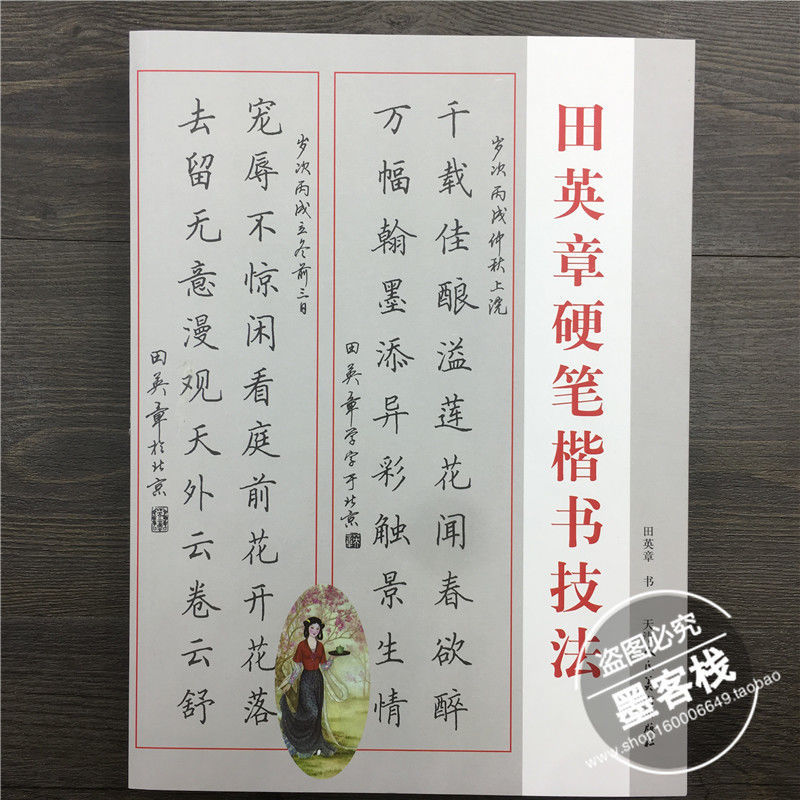 田英章硬笔楷书技法
田英章 书
岁次丙戌仲秋上浣
千载佳酿溢莲花闻春欲醉
万幅翰墨添异彩触景生情
田英章学字于北京
岁次丙戌立冬前三日
宠辱不惊闲看庭前花开花落
去留无意漫观天外云卷云舒
田英章于北京
盗图必究
墨客栈
www.shop160006649.taobao